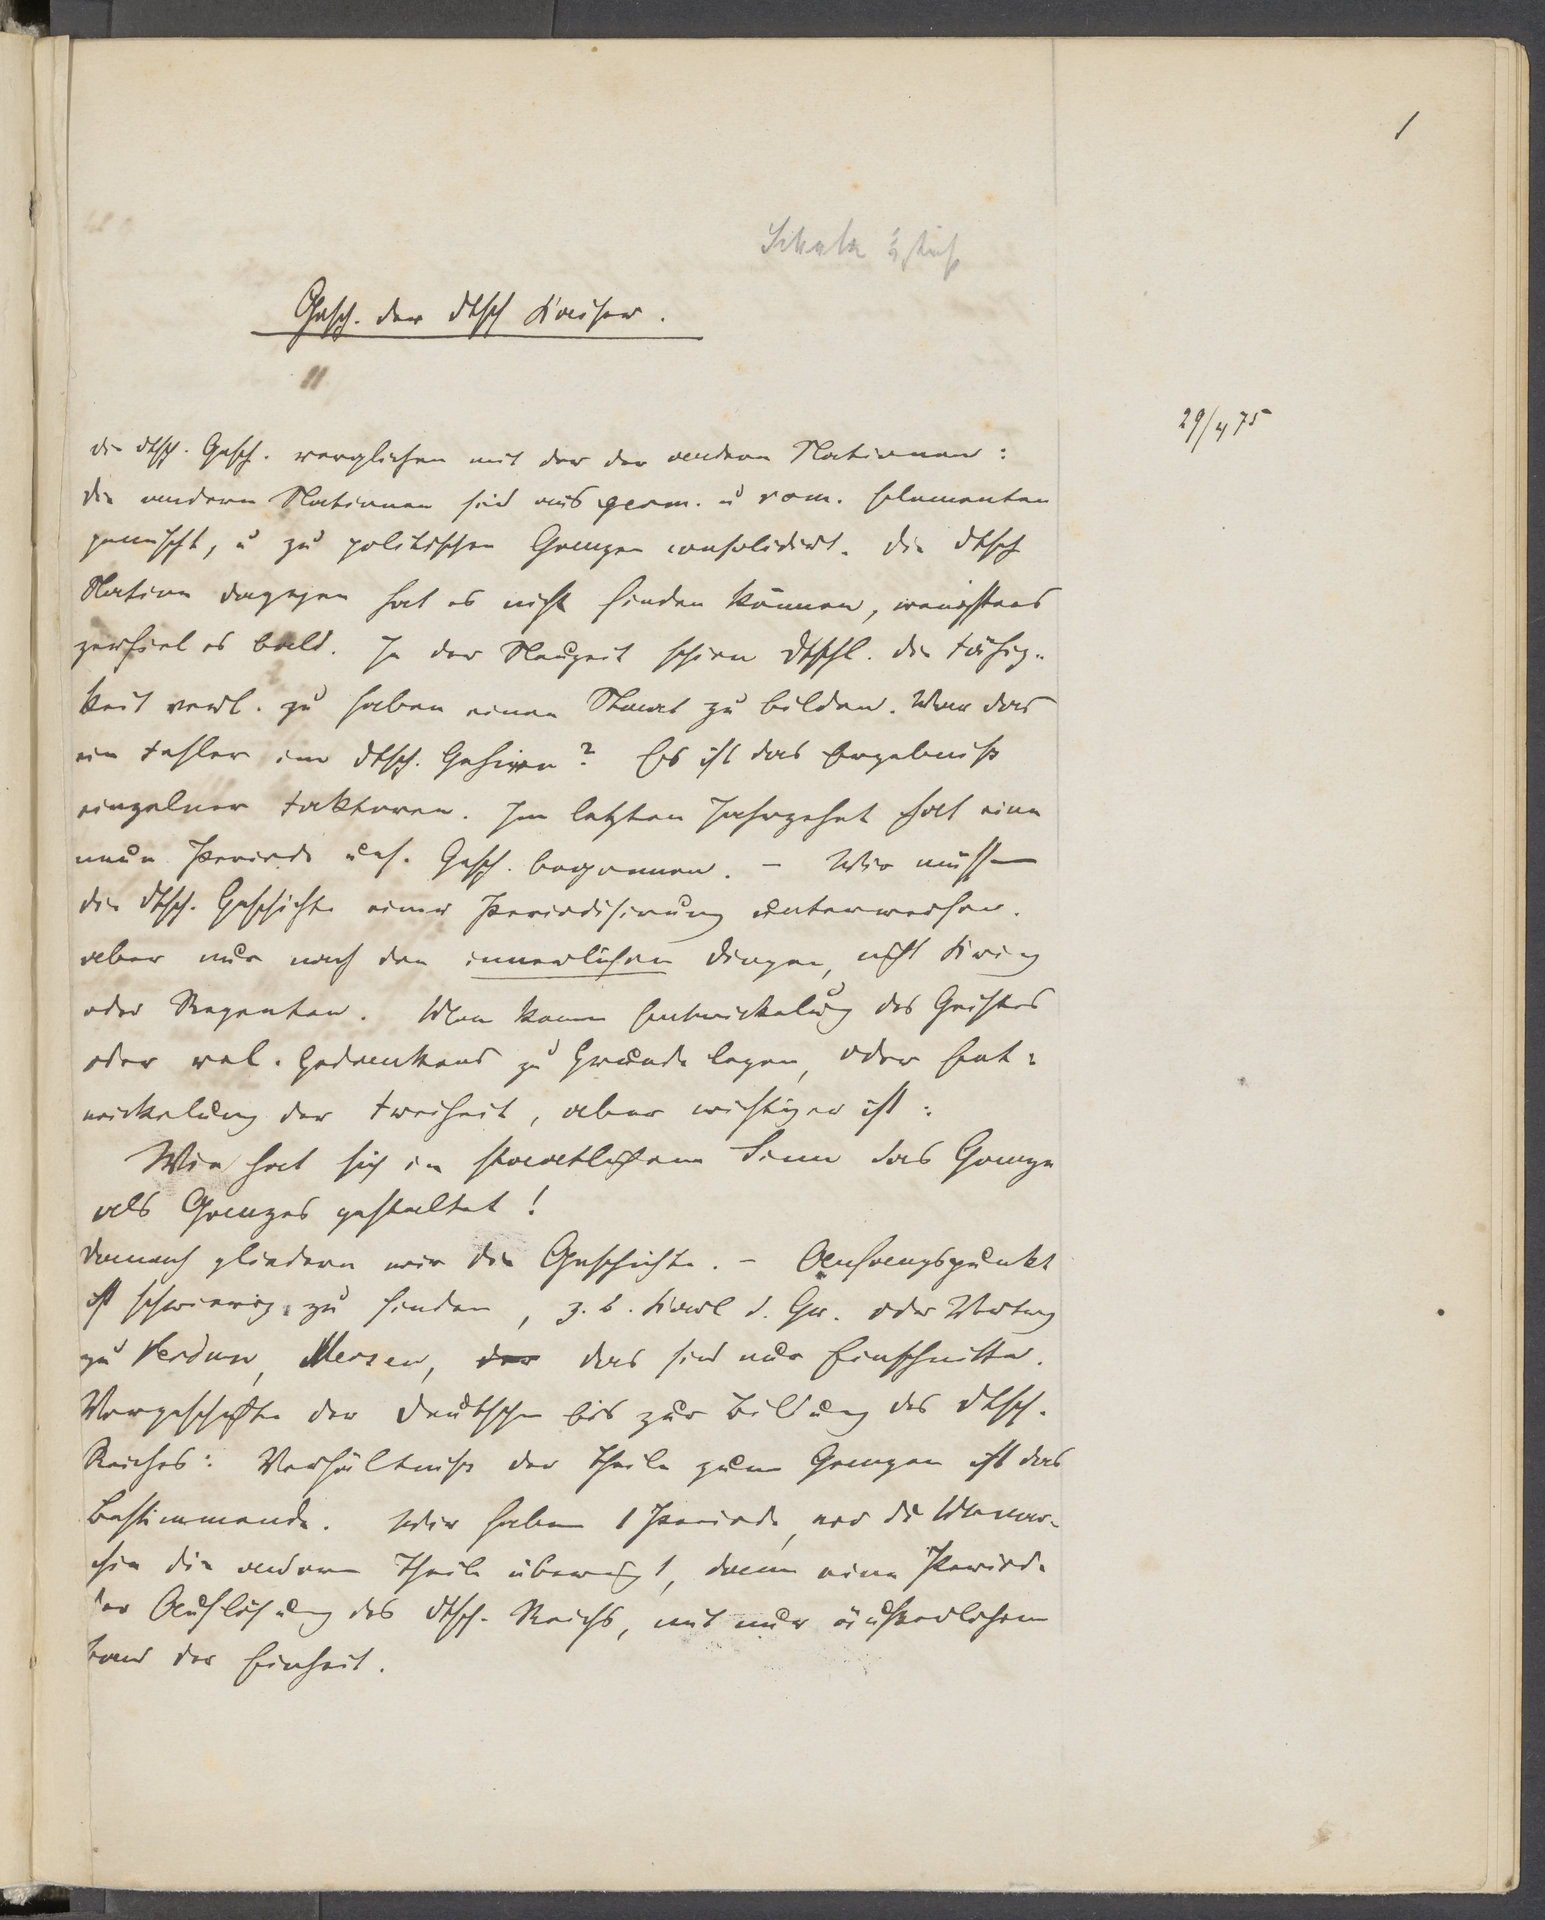 1
Gesch. der dtsch Kaiser.
29/4 75
die dtsch. Gesch. verglichen mit der der andern Nationen:
die andern Nationen sind aus germ. u rom. Elementen
gemischt, u zu politischen Ganzen consolidirt. die dtsch
Nation dagegen hat es nicht finden können, wenigstens
zerfiel es bald. In der Neuzeit schien Dtschl. die Fähig-
keit verl. zu haben einen Staat zu bilden. War das
ein Fehler im dtsch. Gehirn? Es ist das Ergebniß
einzelner Faktoren. Im letzten Jahrzehnt hat eine
neue Periode uns. Gesch. begonnen. – Wir müssen
die dtsch. Geschichte einer Periodisirung unterwerfen.
aber nur nach den innerlichen Dingen, nicht Krieg
oder Regenten. Man kann Entwickelung des Geistes
oder rel. Gedankens zu Grunde legen, oder Ent-
wickelung der Freiheit, aber wichtiger ist:
Wie hat sich in staatlichem Sinn das Ganze
als Ganzes gestaltet!
danach gliedern wir die Geschichte. – Anfangspunkt
ist schwierig zu finden, z. b. Karl d. Gr. oder Vertrag
zu Verdun, Mersen, der das sind nur Einschnitte.
Vorgeschichte der Deutschen bis zur Bildung des dtsch.
Reiches: Verhältniß der Theile zum Ganzen ist das
Bestimmende. Wir haben 1 Periode, wo die Monar-
chie die andern Theile überwiegt, dann eine Periode
der Auflösung des dtsch. Reichs, mit nur äußerlichem
Band der Einheit.